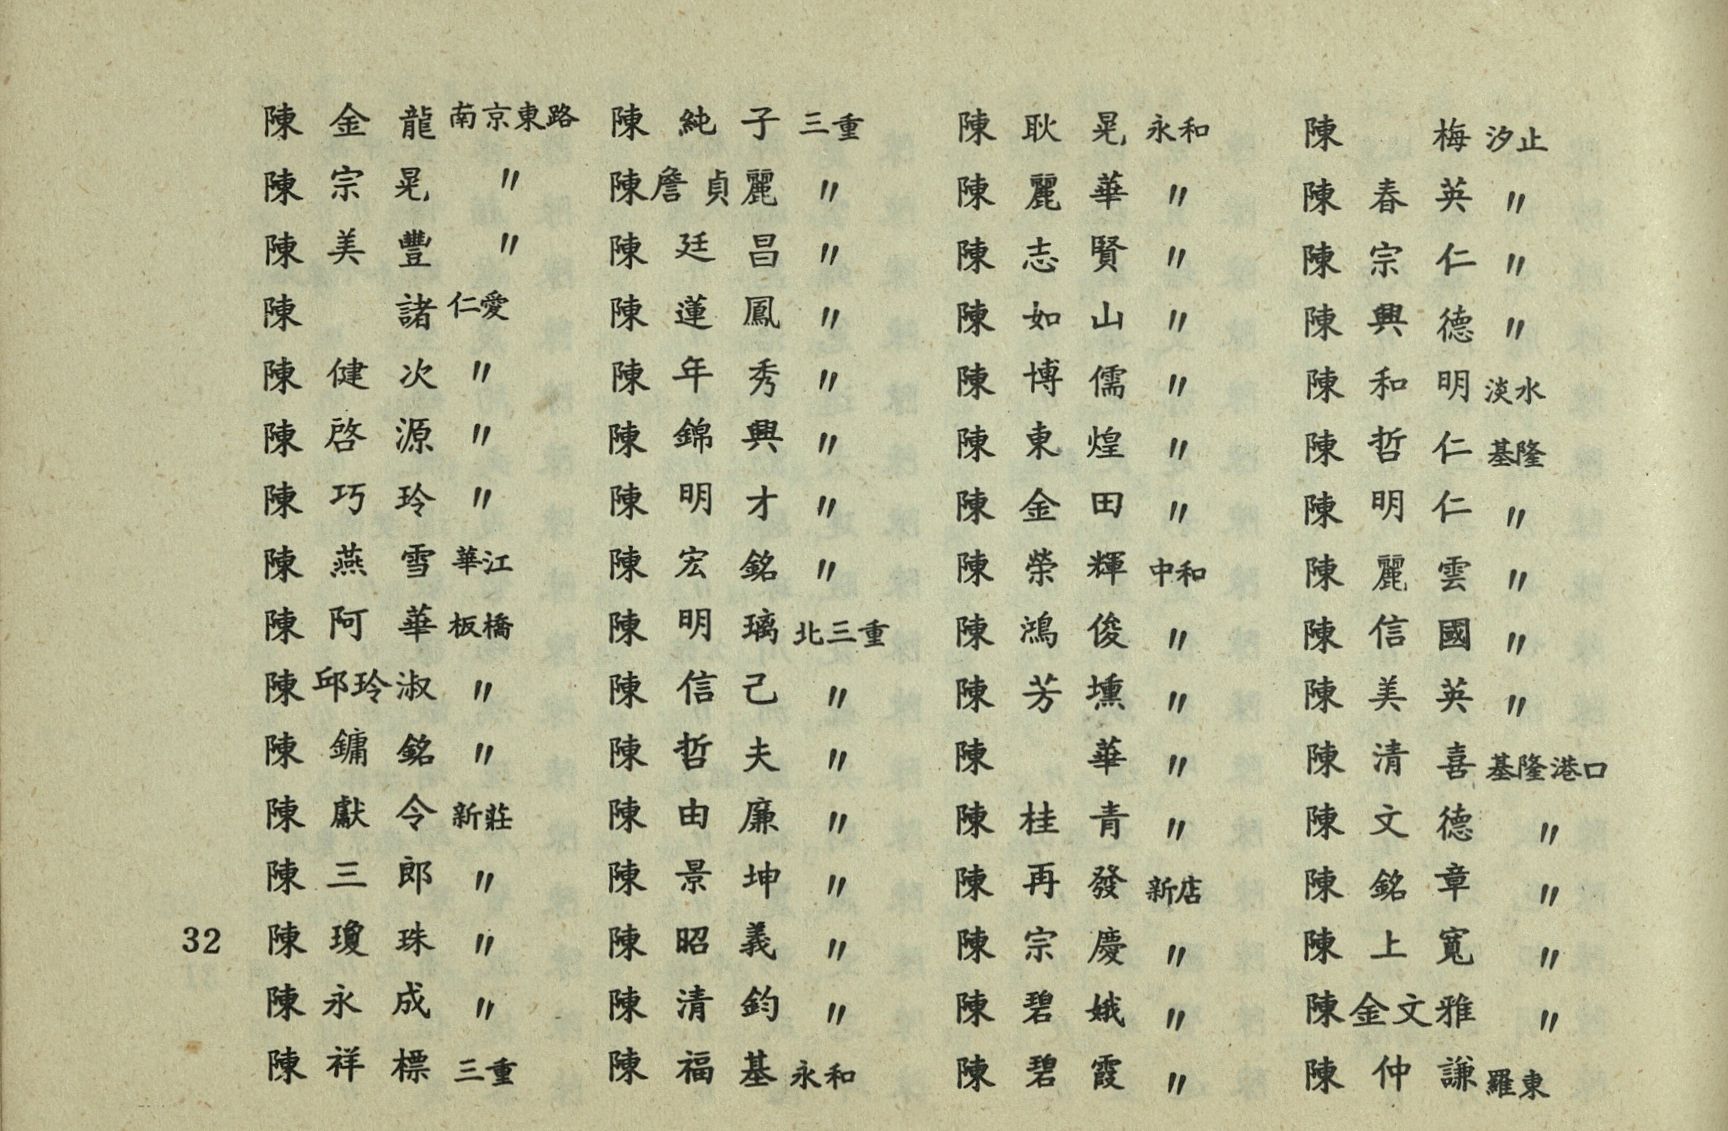 陳金龍 南京東路
陳宗晃 〃
陳美豐 〃
陳　諸 仁愛
陳健次 〃
陳啓源 〃
陳巧玲 〃
陳燕雪 華江
陳阿華 板橋
陳邱玲淑 〃
陳鏞銘 〃
陳獻令 新莊
陳三郎 〃
陳瓊珠 〃
陳永成 〃
陳祥標 三重
陳純子 三重
陳詹貞麗 〃
陳廷昌 〃
陳蓮鳳 〃
陳年秀 〃
陳錦興 〃
陳明才 〃
陳宏銘 〃
陳明璃 北三重
陳信己 〃
陳哲夫 〃
陳由廉 〃
陳景坤 〃
陳昭義 〃
陳清鈞 〃
陳福基 永和
陳耿晃 永和
陳麗華 〃
陳志賢 〃
陳如山 〃
陳博儒 〃
陳東煌 〃
陳金田 〃
陳榮輝 中和
陳鴻俊 〃
陳芳壎 〃
陳　華 〃
陳桂青 〃
陳再發 新店
陳宗慶 〃
陳碧娥 〃
陳碧霞 〃
陳　梅 汐止
陳春英 〃
陳宗仁 〃
陳興德 〃
陳和明 淡水
陳哲仁 基隆
陳明仁 〃
陳麗雲 〃
陳信國 〃
陳美英 〃
陳清喜 基隆港口
陳文德 〃
陳銘章 〃
陳上寬 〃
陳金文雅 〃
陳仲謙 羅東
32